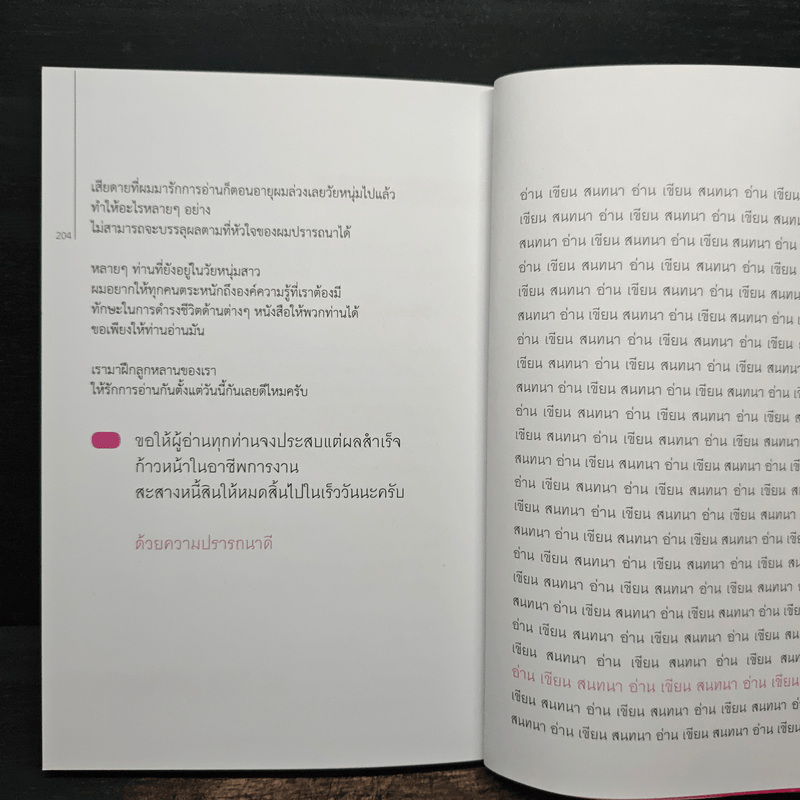 เสียดายที่ผมมารักการอ่านก็ตอนอายุผมล่วงเลยวัยหนุ่มไปแล้ว
ทำให้อะไรหลายๆ อย่าง
ไม่สามารถจะบรรลุผลตามที่หัวใจของผมปรารถนาได้
204
หลายๆ ท่านที่ยังอยู่ในวัยหนุ่มสาว
ผมอยากให้ทุกคนตระหนักถึงองค์ความรู้ที่เราต้องมี
ทักษะในการดำรงชีวิตด้านต่างๆ หนังสือให้พวกท่านได้
ขอเพียงให้ท่านอ่านมัน
เรามาฝึกลูกหลานของเรา
ให้รักการอ่านกันตั้งแต่วันนี้กันเลยดีไหมครับ
ขอให้ผู้อ่านทุกท่านจงประสบแต่ผลสำเร็จ
ก้าวหน้าในอาชีพการงาน
สะสางหนี้สินให้หมดสิ้นไปในเร็ววันนะครับ
ด้วยความปรารถนาดี
อ่าน เขียน สนทนา อ่าน เขียน สนทนา อ่าน เขียน
เขียน สนทนา อ่าน เขียน สนทนา อ่าน เขียน สนทนา
สนทนา อ่าน เขียน สนทนา อ่าน เขียน สนทนา อ่าน
อ่าน เขียน สนทนา อ่าน เขียน สนทนา อ่าน เขียน
เขียน สนทนา อ่าน เขียน สนทนา อ่าน เขียน สนทนา
สนทนา อ่าน เขียน สนทนา อ่าน เขียน สนทนา อ่าน
อ่าน เขียน สนทนา อ่าน เขียน สนทนา อ่าน เขียน
เขียน สนทนา อ่าน เขียน สนทนา อ่าน เขียน สนทนา
สนทนา อ่าน เขียน สนทนา อ่าน เขียน สนทนา อ่าน เขียน
อ่าน เขียน สนทนา อ่าน เขียน สนทนา อ่าน เขียน
เขียน สนทนา อ่าน เขียน สนทนา อ่าน เขียน สนทนา
สนทนา อ่าน เขียน สนทนา อ่าน เขียน สนทนา อ่าน เขียน
อ่าน เขียน สนทนา อ่าน เขียน สนทนา อ่าน เขียน
เขียน สนทนา อ่าน เขียน สนทนา อ่าน เขียน สนทนา
สนทนา อ่าน เขียน สนทนา อ่าน เขียน สนทนา อ่าน เขียน
อ่าน เขียน สนทนา อ่าน เขียน สนทนา อ่าน เขียน
เขียน สนทนา อ่าน เขียน สนทนา อ่าน เขียน สนทนา
สนทนา อ่าน เขียน สนทนา อ่าน เขียน สนทนา อ่าน เขียน
อ่าน เขียน สนทนา อ่าน เขียน สนทนา อ่าน เขียน
เขียน สนทนา อ่าน เขียน สนทนา อ่าน เขียน สนทนา
อ่าน เขียน สนทนา อ่าน เขียน สนทนา อ่าน เขียน
เขียน สนทนา อ่าน เขียน สนทนา อ่าน เขียน สนทนา อ่าน
สนทนา อ่าน เขียน สนทนา อ่าน เขียน สนทนา อ่าน เขียน